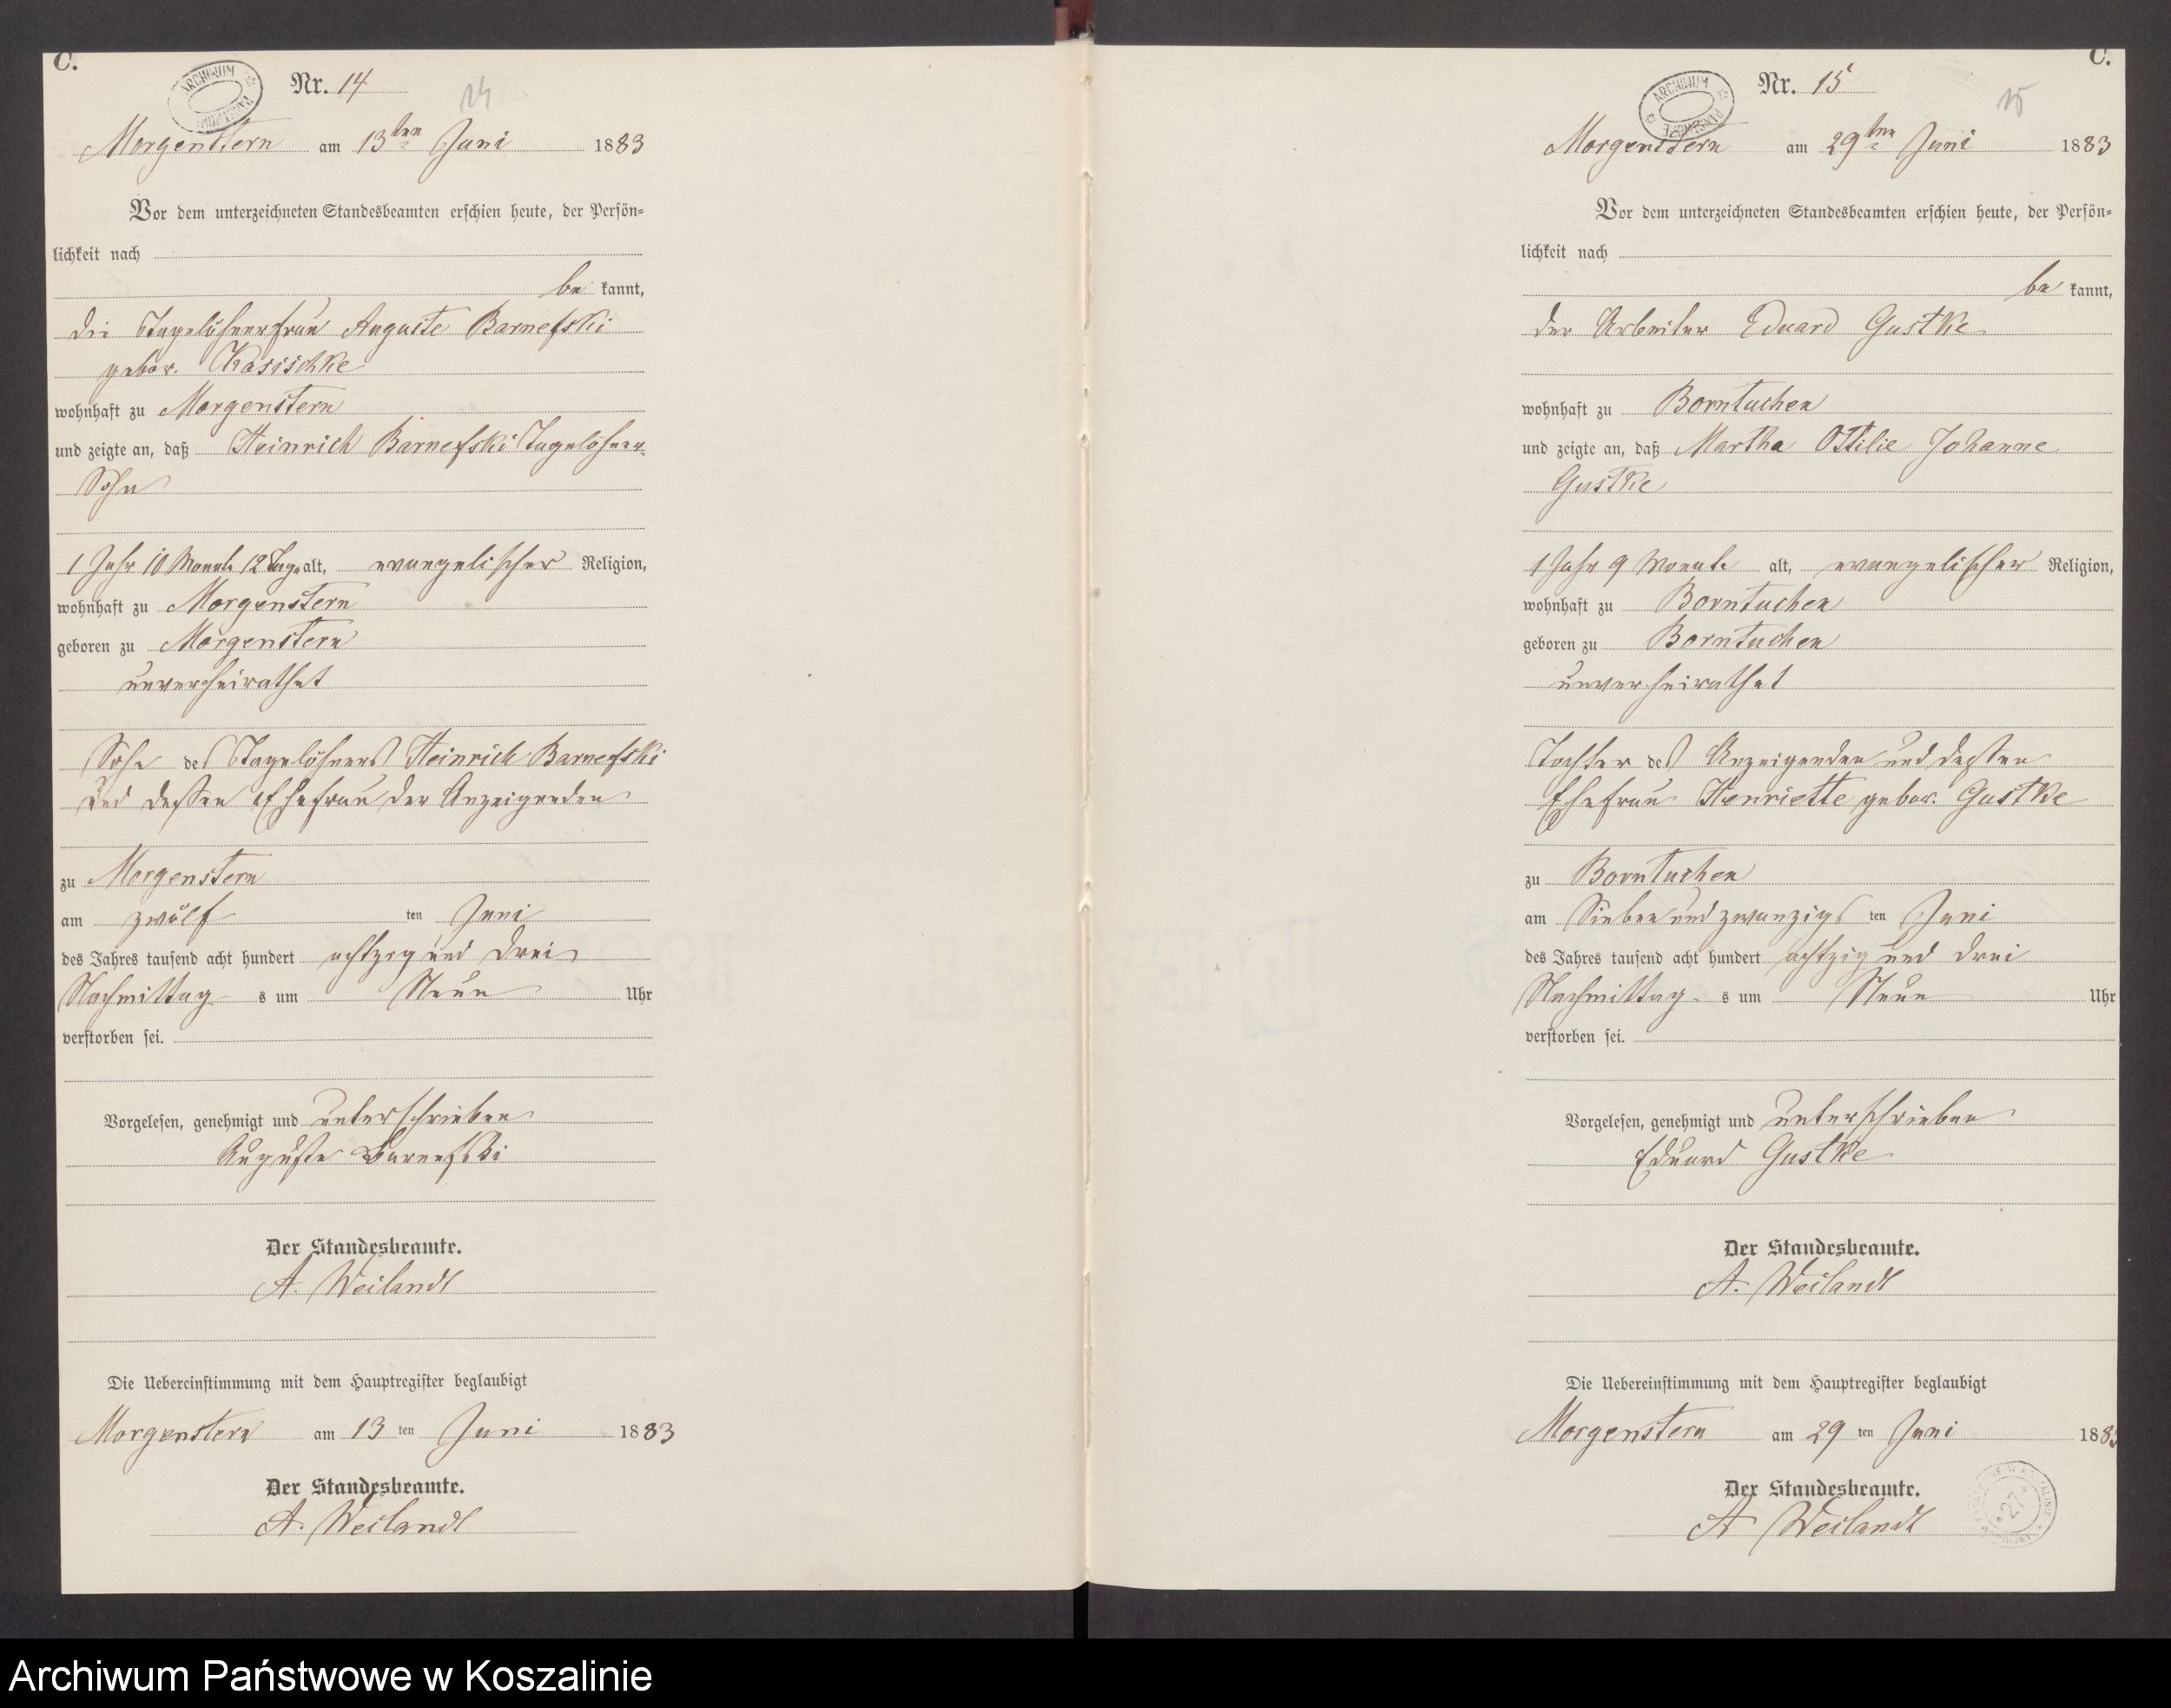 C.
Nr. 14
14
Morgenstern am 13ten Juni 1883
Vor dem unterzeichneten Standesbeamten erschien heute, der Persön=
lichkeit nach
be kannt,
die Tagelöhnerfrau Auguste Barnefski
gebor. Kasischke
wohnhaft zu Morgenstern
und zeigte an, daß Heinrich Barnefski Tagelöhner-
Sohn
1 Jahr 10 Monate 12 Tage alt, evangelischer Religion,
wohnhaft zu Morgenstern
geboren zu Morgenstern
unverheirathet
Sohn des Tagelöhners Heinrich Barnefski
und dessen Ehefrau der Anzeigenden
zu Morgenstern
am zwölf ten Juni
des Jahres tausend acht hundert achtzig und drei
Nachmittag s um Neun Uhr
verstorben sei.
Vorgelesen, genehmigt und unterschrieben
Auguste Barnefski
Der Standesbeamte.
A. Weilandt
Die Uebereinstimmung mit dem Hauptregister beglaubigt
Morgenstern am 13 ten Juni 1883
Der Standesbeamte.
A. Weilandt
C.
ARCHIWUM PAŃSTWOWE
Nr. 15
15
Morgenstern am 29ten Juni 1883
Vor dem unterzeichneten Standesbeamten erschien heute, der Persön=
lichkeit nach
be kannt,
der Arbeiter Eduard Gustke
wohnhaft zu Borntuchen
und zeigte an, daß Martha Ottilie Johanne
Gustke
1 Jahr 9 Monate alt, evangelischer Religion,
wohnhaft zu Borntuchen
geboren zu Borntuchen
unverheirathet
Tochter des Anzeigenden und dessen
Ehefrau Henriette gebor. Gustke
zu Borntuchen
am Sieben und zwanzigs ten Juni
des Jahres tausend acht hundert achtzig und drei
Nachmittag s um Neun Uhr
verstorben sei.
Vorgelesen, genehmigt und unterschrieben
Eduard Gustke
Der Standesbeamte.
A. Weilandt
Die Uebereinstimmung mit dem Hauptregister beglaubigt
Morgenstern am 29 ten Juni 1883
Der Standesbeamte.
A Weilandt
27
Archiwum Państwowe w Koszalinie